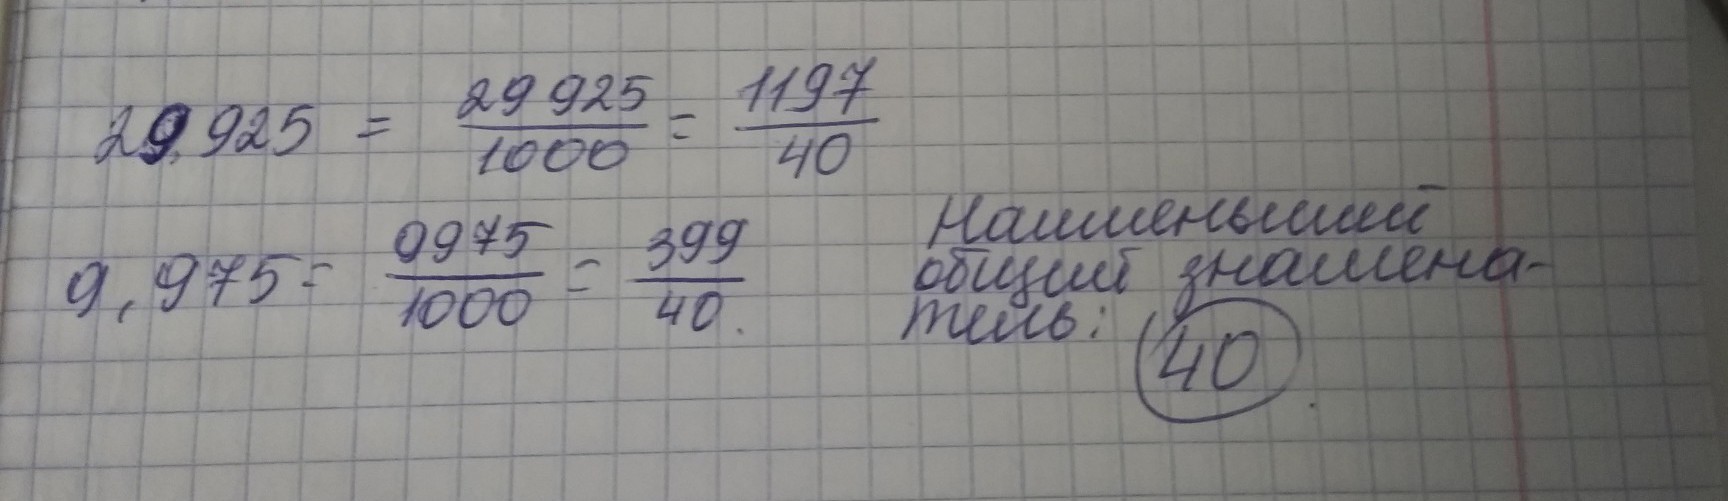 29,925 = 29925/1000 = 1197/40
9,975 = 9975/1000 = 399/40.
Наименьший
общий знамена-
тель: 40